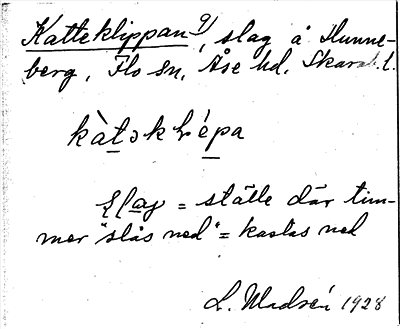 Katteklippan 9), slag å Hunne-
berg, Flo sn, Åse hd. Skarab. l.
kàtəkl̥épa
= ställe där tim-
mer "slås ned" = kastas ned
L. Madsén 1928